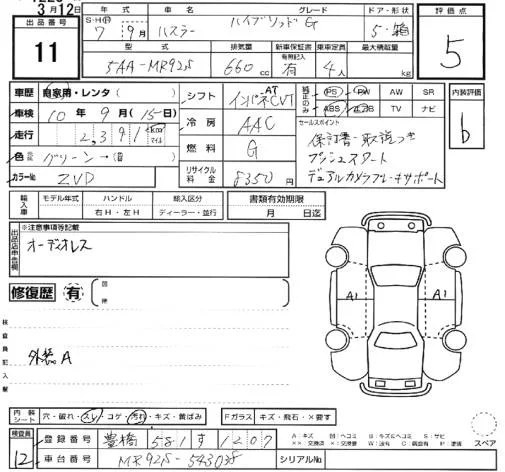 3月12日
出品番号 11
S・H・R 年式 車名 グレード ドア・形状
7年 9月 ハスラー ハイブリッド G 5・箱
型式 排気量 新車保証書 乗車定員 最大積載量
有無記入
5AA-MR92S 660 cc 有 4人 kg
評価点 5
車歴 自家用・レンタ( )
車検 10年 9月(15日)
走行 2,391 km マイル
色 グリーン→( )
カラーNo. ZVD
シフト AT インパネCVT
冷房 AAC
燃料 G
リサイクル料金 8350円
純正のみ PS PW AW SR
ABS エアB TV ナビ
セールスポイント
保証書・取説つき
プッシュスタート
デュアルカメラブレーキサポート
内装評価 b
輸入車 モデル年式 ハンドル 輸入区分
右H・左H ディーラー・並行
書類有効期限
月 日迄
出品店申告欄 ※注意事項等記載
オーディオレス
修復歴 有
検査員記入欄
外装A
A1 A1
内装シート 穴・破れ・スレ・コゲ・汚れ・キズ・黄ばみ
Fガラス キズ・飛石・X要す
検査員 12
登録番号 豊橋 581 す 1207
車台番号 MR92S-543038
シリアルNo.
A:キズ U:ヘコミ B:キズ&ヘコミ S:サビ
XX:交換済 X:要交換 W:波有 C:腐食有 P:塗装
スペア